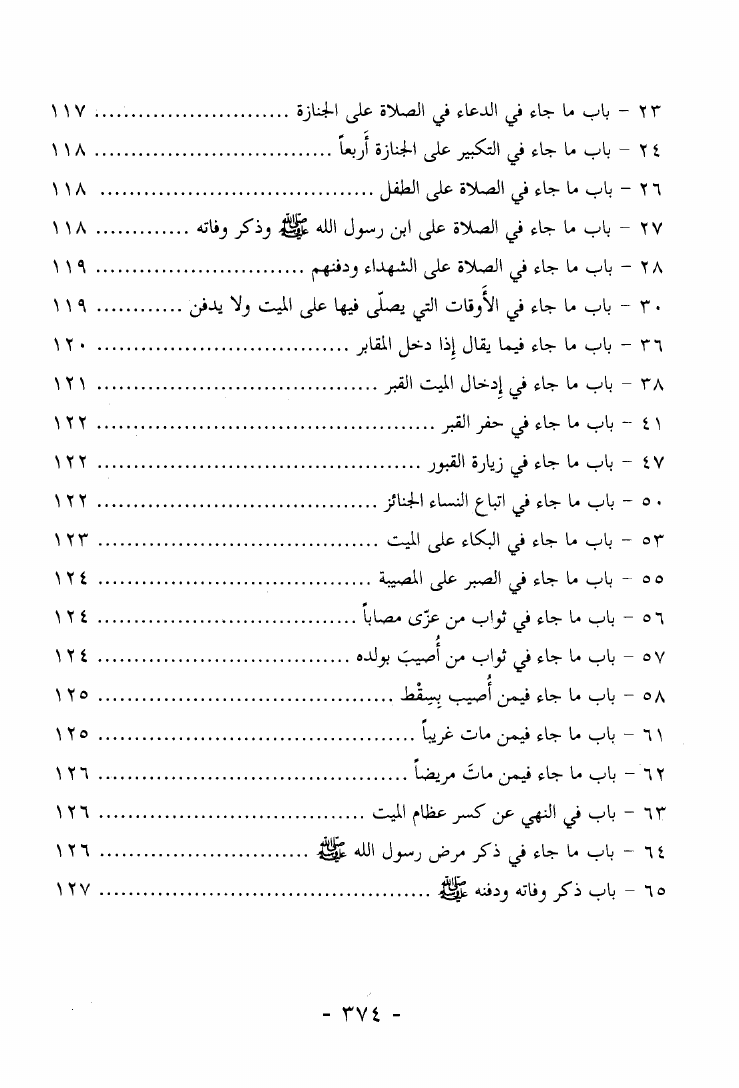 ٢٣ - باب ما جاء في الدعاء في الصلاة على الجنازة ........................... ١١٧
٢٤ - باب ما جاء في التكبير على الجنازة أَربعاً ................................ ١١٨
٢٦ - باب ما جاء في الصلاة على الطفل ..................................... ١١٨
٢٧ - باب ما جاء في الصلاة على ابن رسول الله ﷺ وذكر وفاته ............. ١١٨
٢٨ - باب ما جاء في الصلاة على الشهداء ودفنهم ............................ ١١٩
٣٠ - باب ما جاء في الأَوقات التي يصلّى فيها على الميت ولا يدفن ............ ١١٩
٣٦ - باب ما جاء فيما يقال إِذا دخل المقابر .................................. ١٢٠
٣٨ - باب ما جاء في إِدخال الميت القبر ...................................... ١٢١
٤١ - باب ما جاء في حفر القبر .............................................. ١٢٢
٤٧ - باب ما جاء في زيارة القبور ............................................ ١٢٢
٥٠ - باب ما جاء في اتباع النساء الجنائز ...................................... ١٢٢
٥٣ - باب ما جاء في البكاء على الميت ...................................... ١٢٣
٥٥ - باب ما جاء في الصبر على المصيبة ..................................... ١٢٤
٥٦ - باب ما جاء في ثواب من عزّى مصاباً ................................... ١٢٤
٥٧ - باب ما جاء في ثواب من أُصيبَ بولده .................................. ١٢٤
٥٨ - باب ما جاء فيمن أُصيب بِسِقْط ........................................ ١٢٥
٦١ - باب ما جاء فيمن مات غريباً ........................................... ١٢٥
٦٢ - باب ما جاء فيمن ماتَ مريضاً .......................................... ١٢٦
٦٣ - باب في النهي عن كسر عظام الميت .................................... ١٢٦
٦٤ - باب ما جاء في ذكر مرض رسول الله ﷺ ............................. ١٢٦
٦٥ - باب ذكر وفاته ودفنه ﷺ ............................................. ١٢٧
- ٣٧٤ -